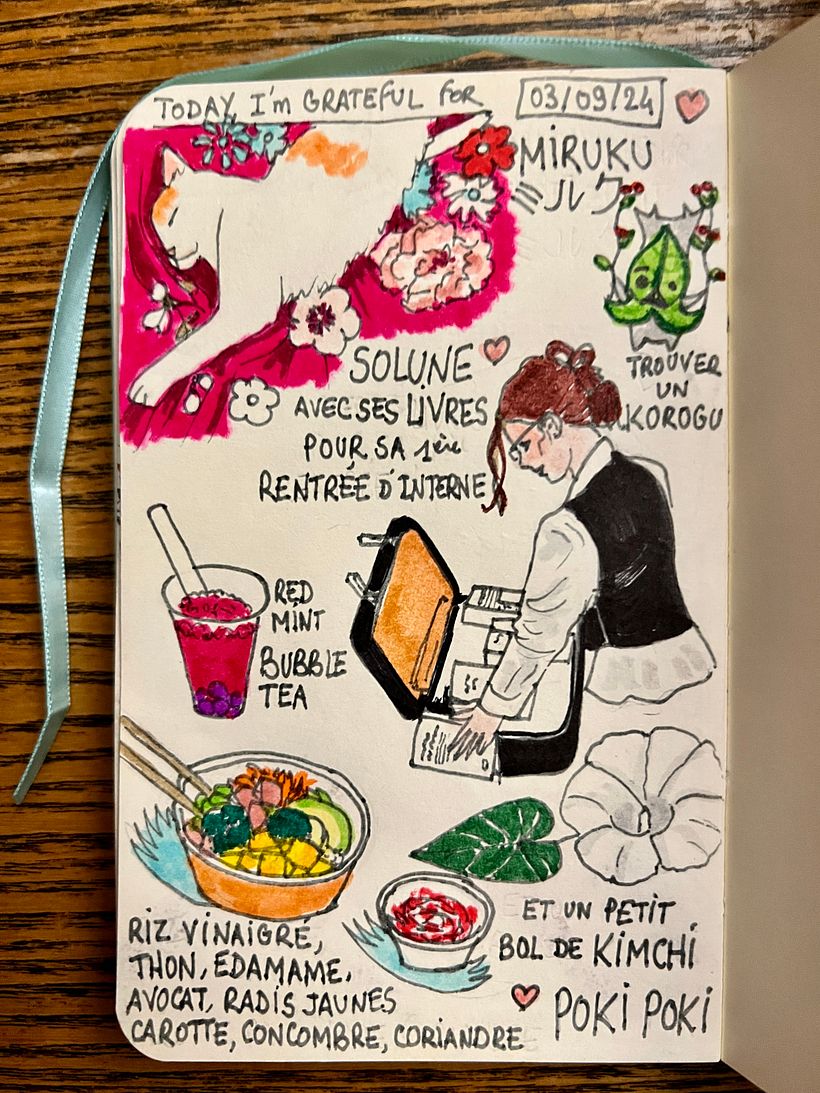 TODAY, I'm GRATEFUL FOR
03/09/24
MIRUKU
ミルク
TROUVER
UN
KOROGU
SOLUNE
AVEC SES LIVRES
POUR SA 1ère
RENTRÉE D'INTERNE
RED
MINT
BUBBLE
TEA
RIZ VINAIGRÉ,
THON, EDAMAME,
AVOCAT, RADIS JAUNES
CAROTTE, CONCOMBRE, CORIANDRE
ET UN PETIT
BOL DE KIMCHI
POKI POKI